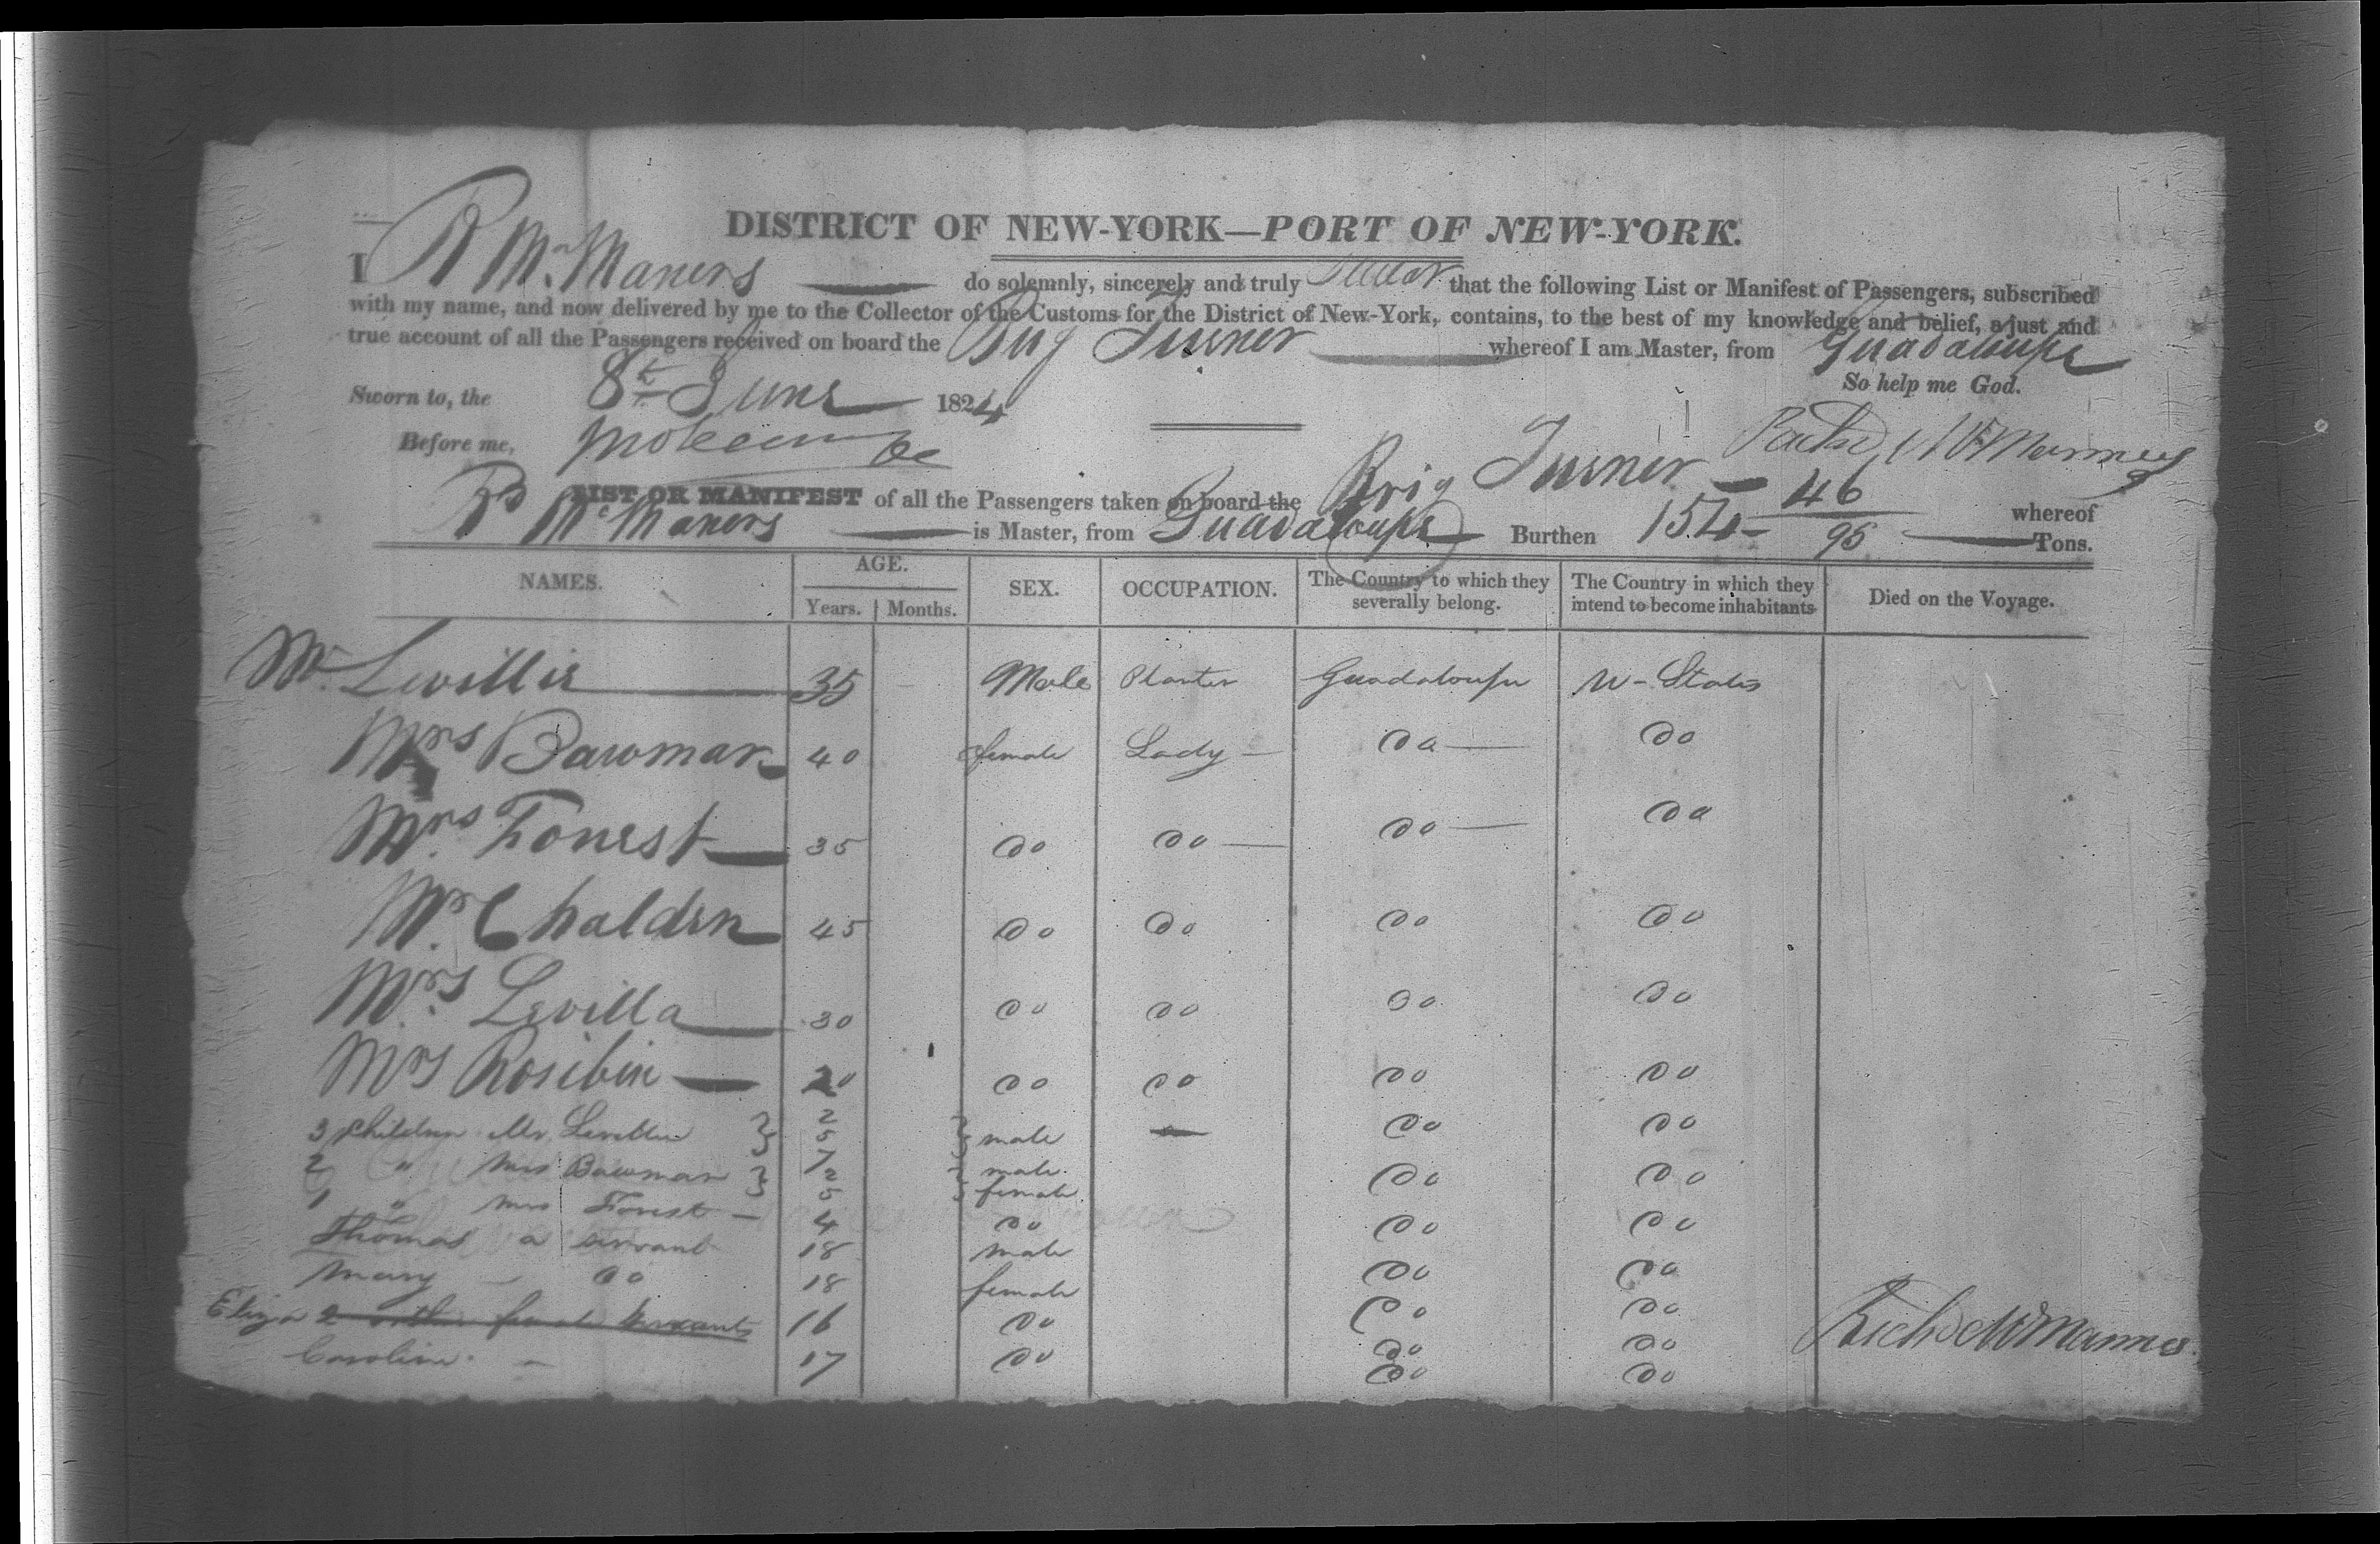 DISTRICT OF NEW-YORK—PORT OF NEW-YORK.
I R Mc Maners do solemnly, sincerely and truly swear that the following List or Manifest of Passengers, subscribed
with my name, and now delivered by me to the Collector of the Customs for the District of New-York, contains, to the best of my knowledge and belief, a just and
true account of all the Passengers received on board the Brig Turner whereof I am Master, from Guadaloupe
So help me God.
Sworn to, the 8th June 1824
Before me,
LIST OR MANIFEST of all the Passengers taken on board the Brig Turner whereof
Rd Mc Maners is Master, from Guadaloupe Burthen 154 46/95 Tons.
NAMES. AGE. Years. Months. SEX. OCCUPATION. The Country to which they severally belong. The Country in which they intend to become inhabitants Died on the Voyage.
Mr. Levillie 35 Male Planter Guadaloupe U-States
Mrs Bawman 40 female Lady Do Do
Mrs Forrest 35 Do Do Do Do
Mrs Chaldrn 45 Do Do Do Do
Mrs Levilla 30 Do Do Do Do
Mrs Rosibin 20 Do Do Do Do
3 Children Mr. Levillie 2 5 7 male Do Do
2 " Mrs Bawman 2 5 male female Do Do
1 " Mrs Forest 4 Do Do Do
Thomas a servant 18 male Do Do
Mary Do 18 female Do Do
Eliza 2 other female servants 16 Do Do Do
Caroline 17 Do Do Do
Richd McManners